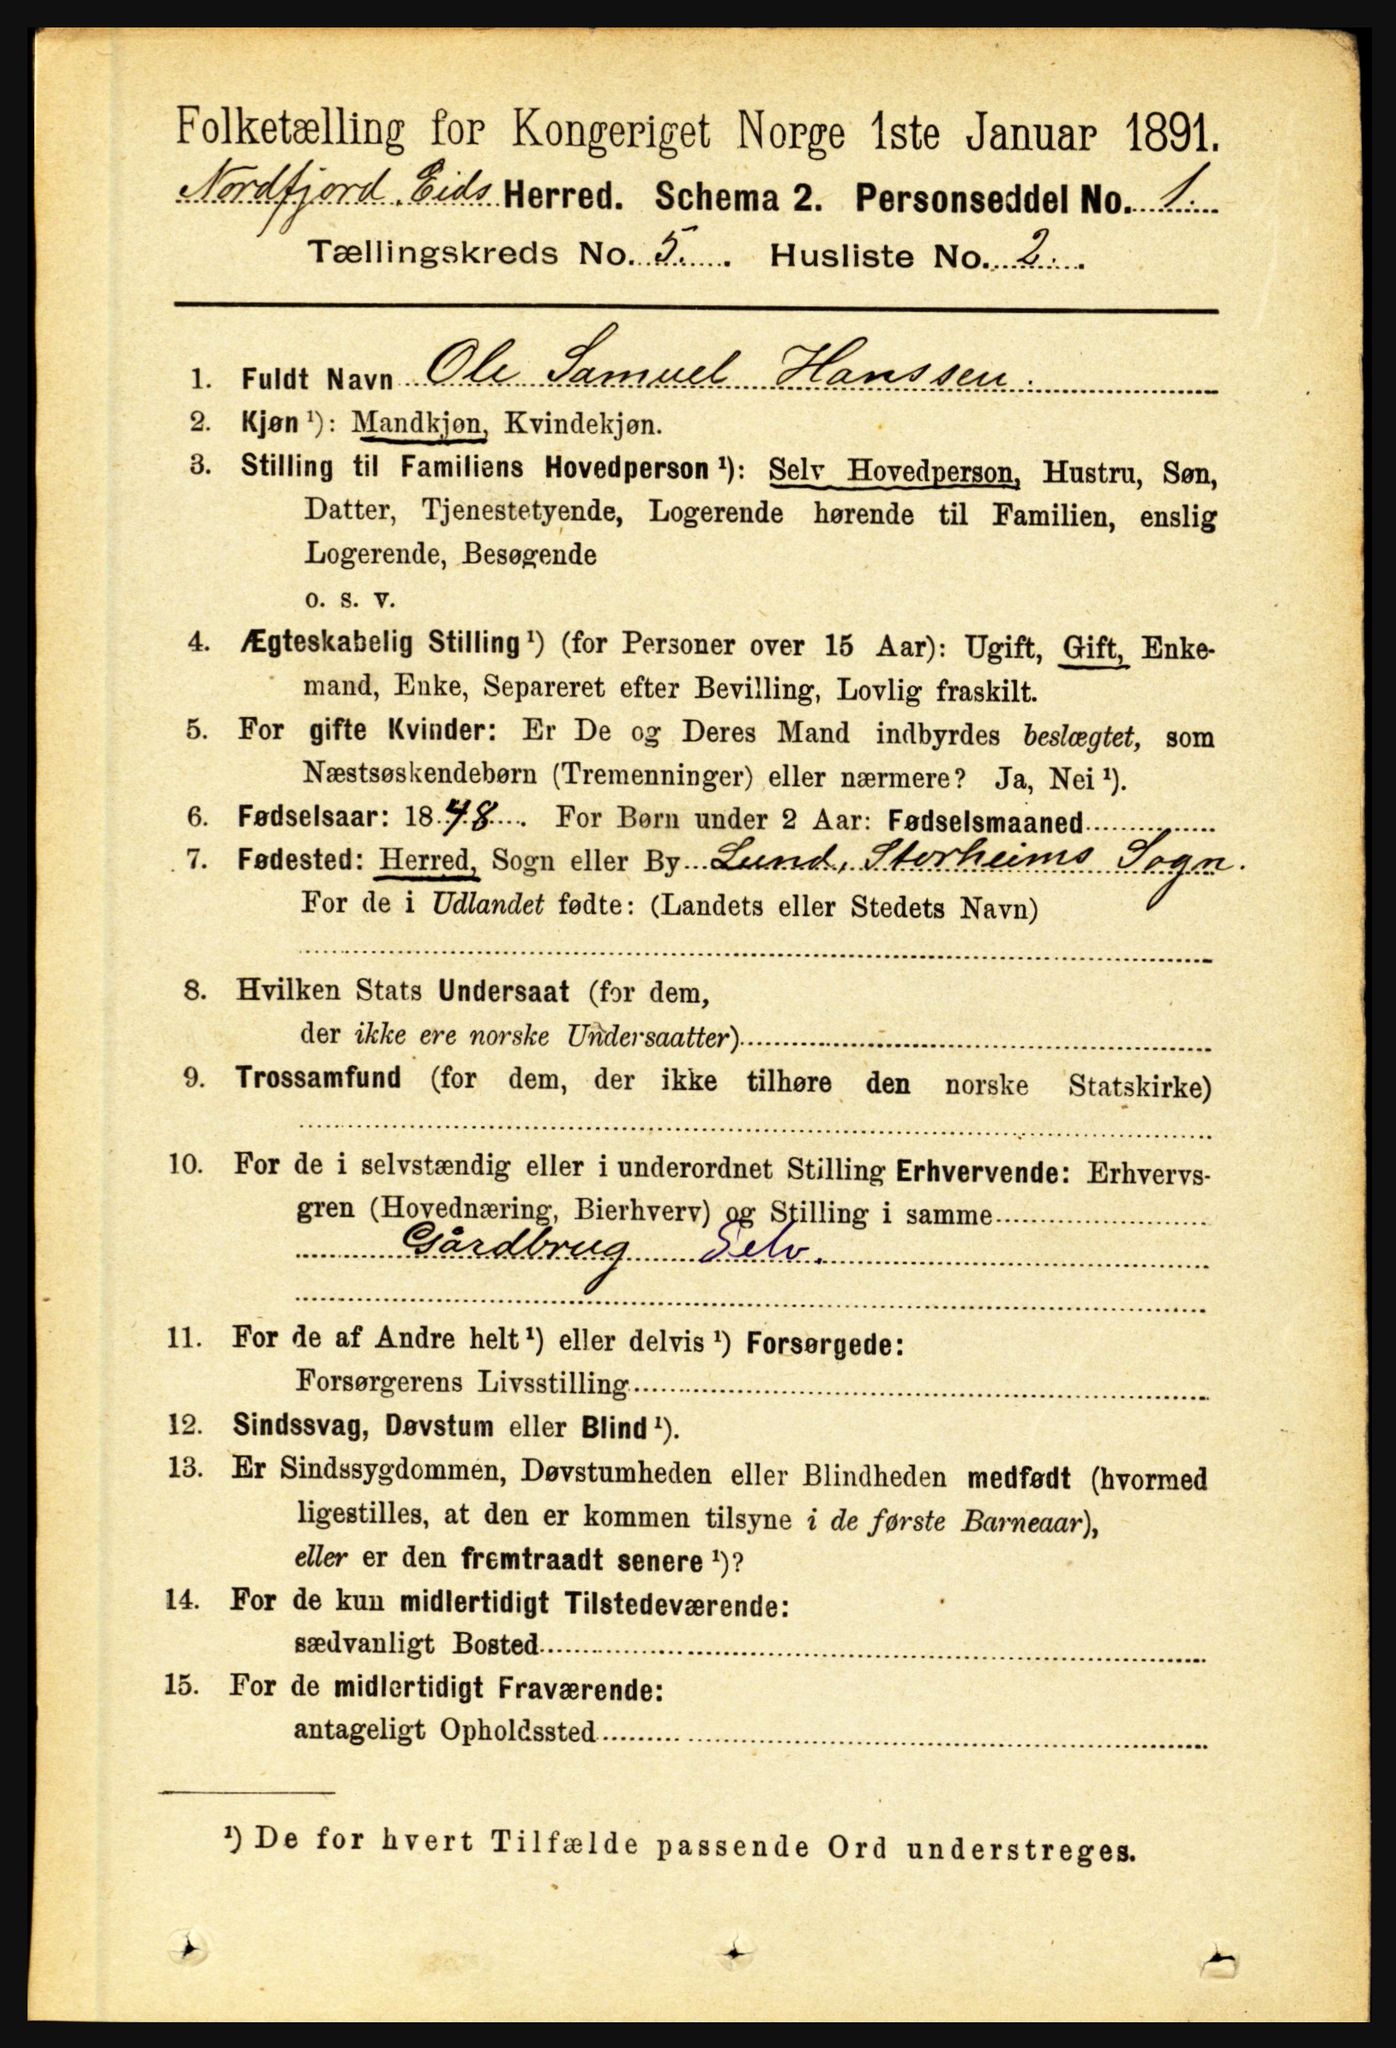 Folketælling for Kongeriget Norge 1ste Januar 1891.
Nordfjord Eids Herred. Schema 2. Personseddel No. 1.
Tællingskreds No. 5. Husliste No. 2.
1. Fuldt Navn Ole Samuel Hanssen.
2. Kjøn ¹): Mandkjøn, Kvindekjøn.
3. Stilling til Familiens Hovedperson ¹): Selv Hovedperson, Hustru, Søn,
Datter, Tjenestetyende, Logerende hørende til Familien, enslig
Logerende, Besøgende
o. s. v.
4. Ægteskabelig Stilling ¹) (for Personer over 15 Aar): Ugift, Gift, Enke-
mand, Enke, Separeret efter Bevilling, Lovlig fraskilt.
5. For gifte Kvinder: Er De og Deres Mand indbyrdes beslægtet, som
Næstsøskendebørn (Tremenninger) eller nærmere? Ja, Nei ¹).
6. Fødselsaar: 1848. For Børn under 2 Aar: Fødselsmaaned
7. Fødested: Herred, Sogn eller By Lund, Storheims Sogn.
For de i Udlandet fødte: (Landets eller Stedets Navn)
8. Hvilken Stats Undersaat (for dem,
der ikke ere norske Undersaatter)
9. Trossamfund (for dem, der ikke tilhøre den norske Statskirke)
10. For de i selvstændig eller i underordnet Stilling Erhvervende: Erhvervs-
gren (Hovednæring, Bierhverv) og Stilling i samme
Gårdbrug Selv.
11. For de af Andre helt ¹) eller delvis ¹) Forsørgede:
Forsørgerens Livsstilling
12. Sindssvag, Døvstum eller Blind ¹).
13. Er Sindssygdommen, Døvstumheden eller Blindheden medfødt (hvormed
ligestilles, at den er kommen tilsyne i de første Barneaar),
eller er den fremtraadt senere ¹)?
14. For de kun midlertidigt Tilstedeværende:
sædvanligt Bosted
15. For de midlertidigt Fraværende:
antageligt Opholdssted
¹) De for hvert Tilfælde passende Ord understreges.